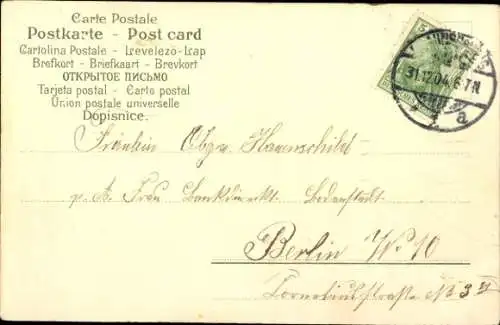 Carte Postale
Postkarte - Post card
Cartolina Postale - Levelező-Lap
Brefkort - Briefkaart - Brevkort
ОТКРЫТОЕ ПИСЬМО
Tarjeta postal - Carto postal
Union postale universelle
Dopisnice.
5
31.12.04. 6-7N
a
Fräulein Olga Hauenschild
p. A. Frau Bankdirekt. Bodenstedt
Berlin W. 10
Corneliusstraße No 3 II